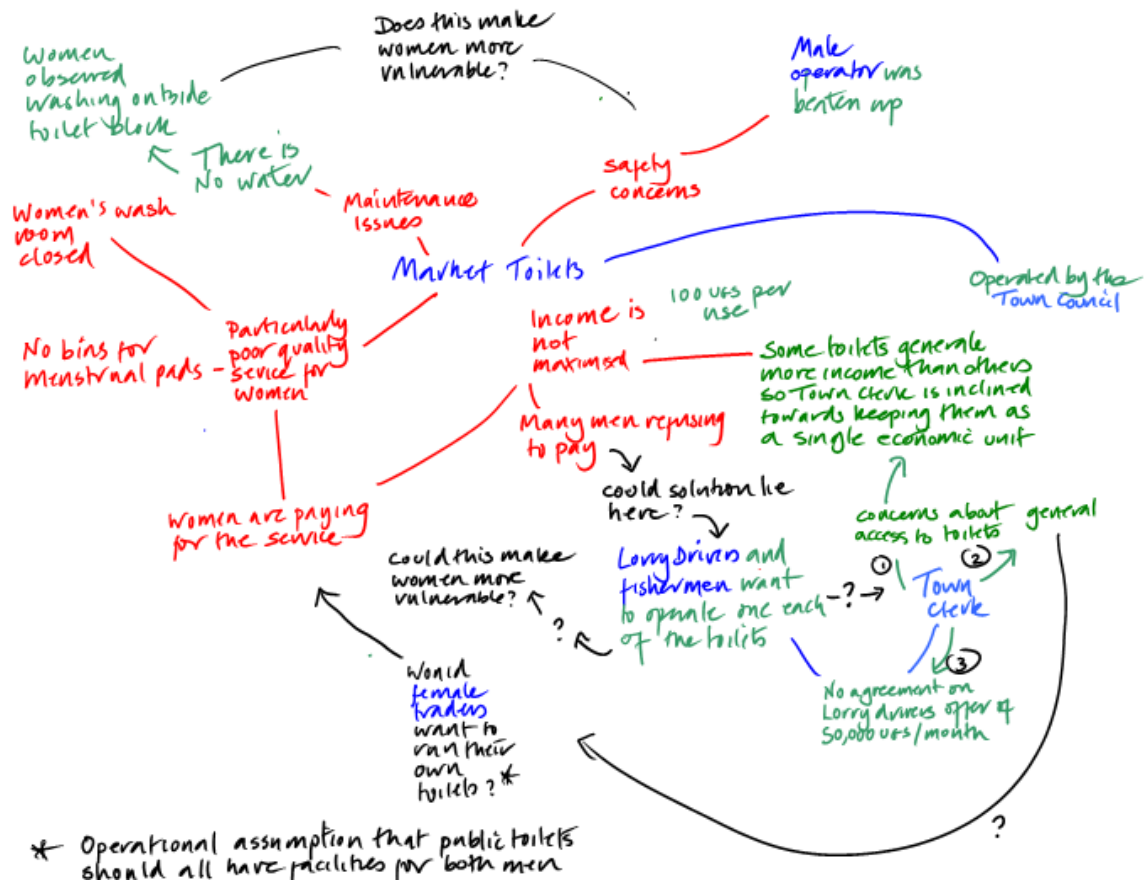 Does this make
women more
vulnerable?
Women
observed
washing outside
toilet block
Male
operator was
beaten up
There is
No water
safety
concerns
Maintenance
Issues
Women's wash
room
closed
Market Toilets
Operated by the
Town Council
100 UGS per
use
Income is
not
maximised
Particularly
poor quality
sevice for
women
No bins for
menstrual pads
Some toilets generate
more income than others
so Town Clerk is inclined
towards keeping them as
a single economic unit
Many men refusing
to pay
could solution lie
here?
Women are paying
for the service
concerns about
access to toilets
general
Could this make
women more
vulnerable?
Lorry Drivers and
fishermen want
to operate one each
of the toilets
-?→
①
②
Town
Clerk
③
?
No agreement on
Lorry drivers offer of
50,000 UGS/month
Would
female
traders
want to
run their
own
toilets?*
?
* Operational assumption that public toilets
should all have facilities for both men